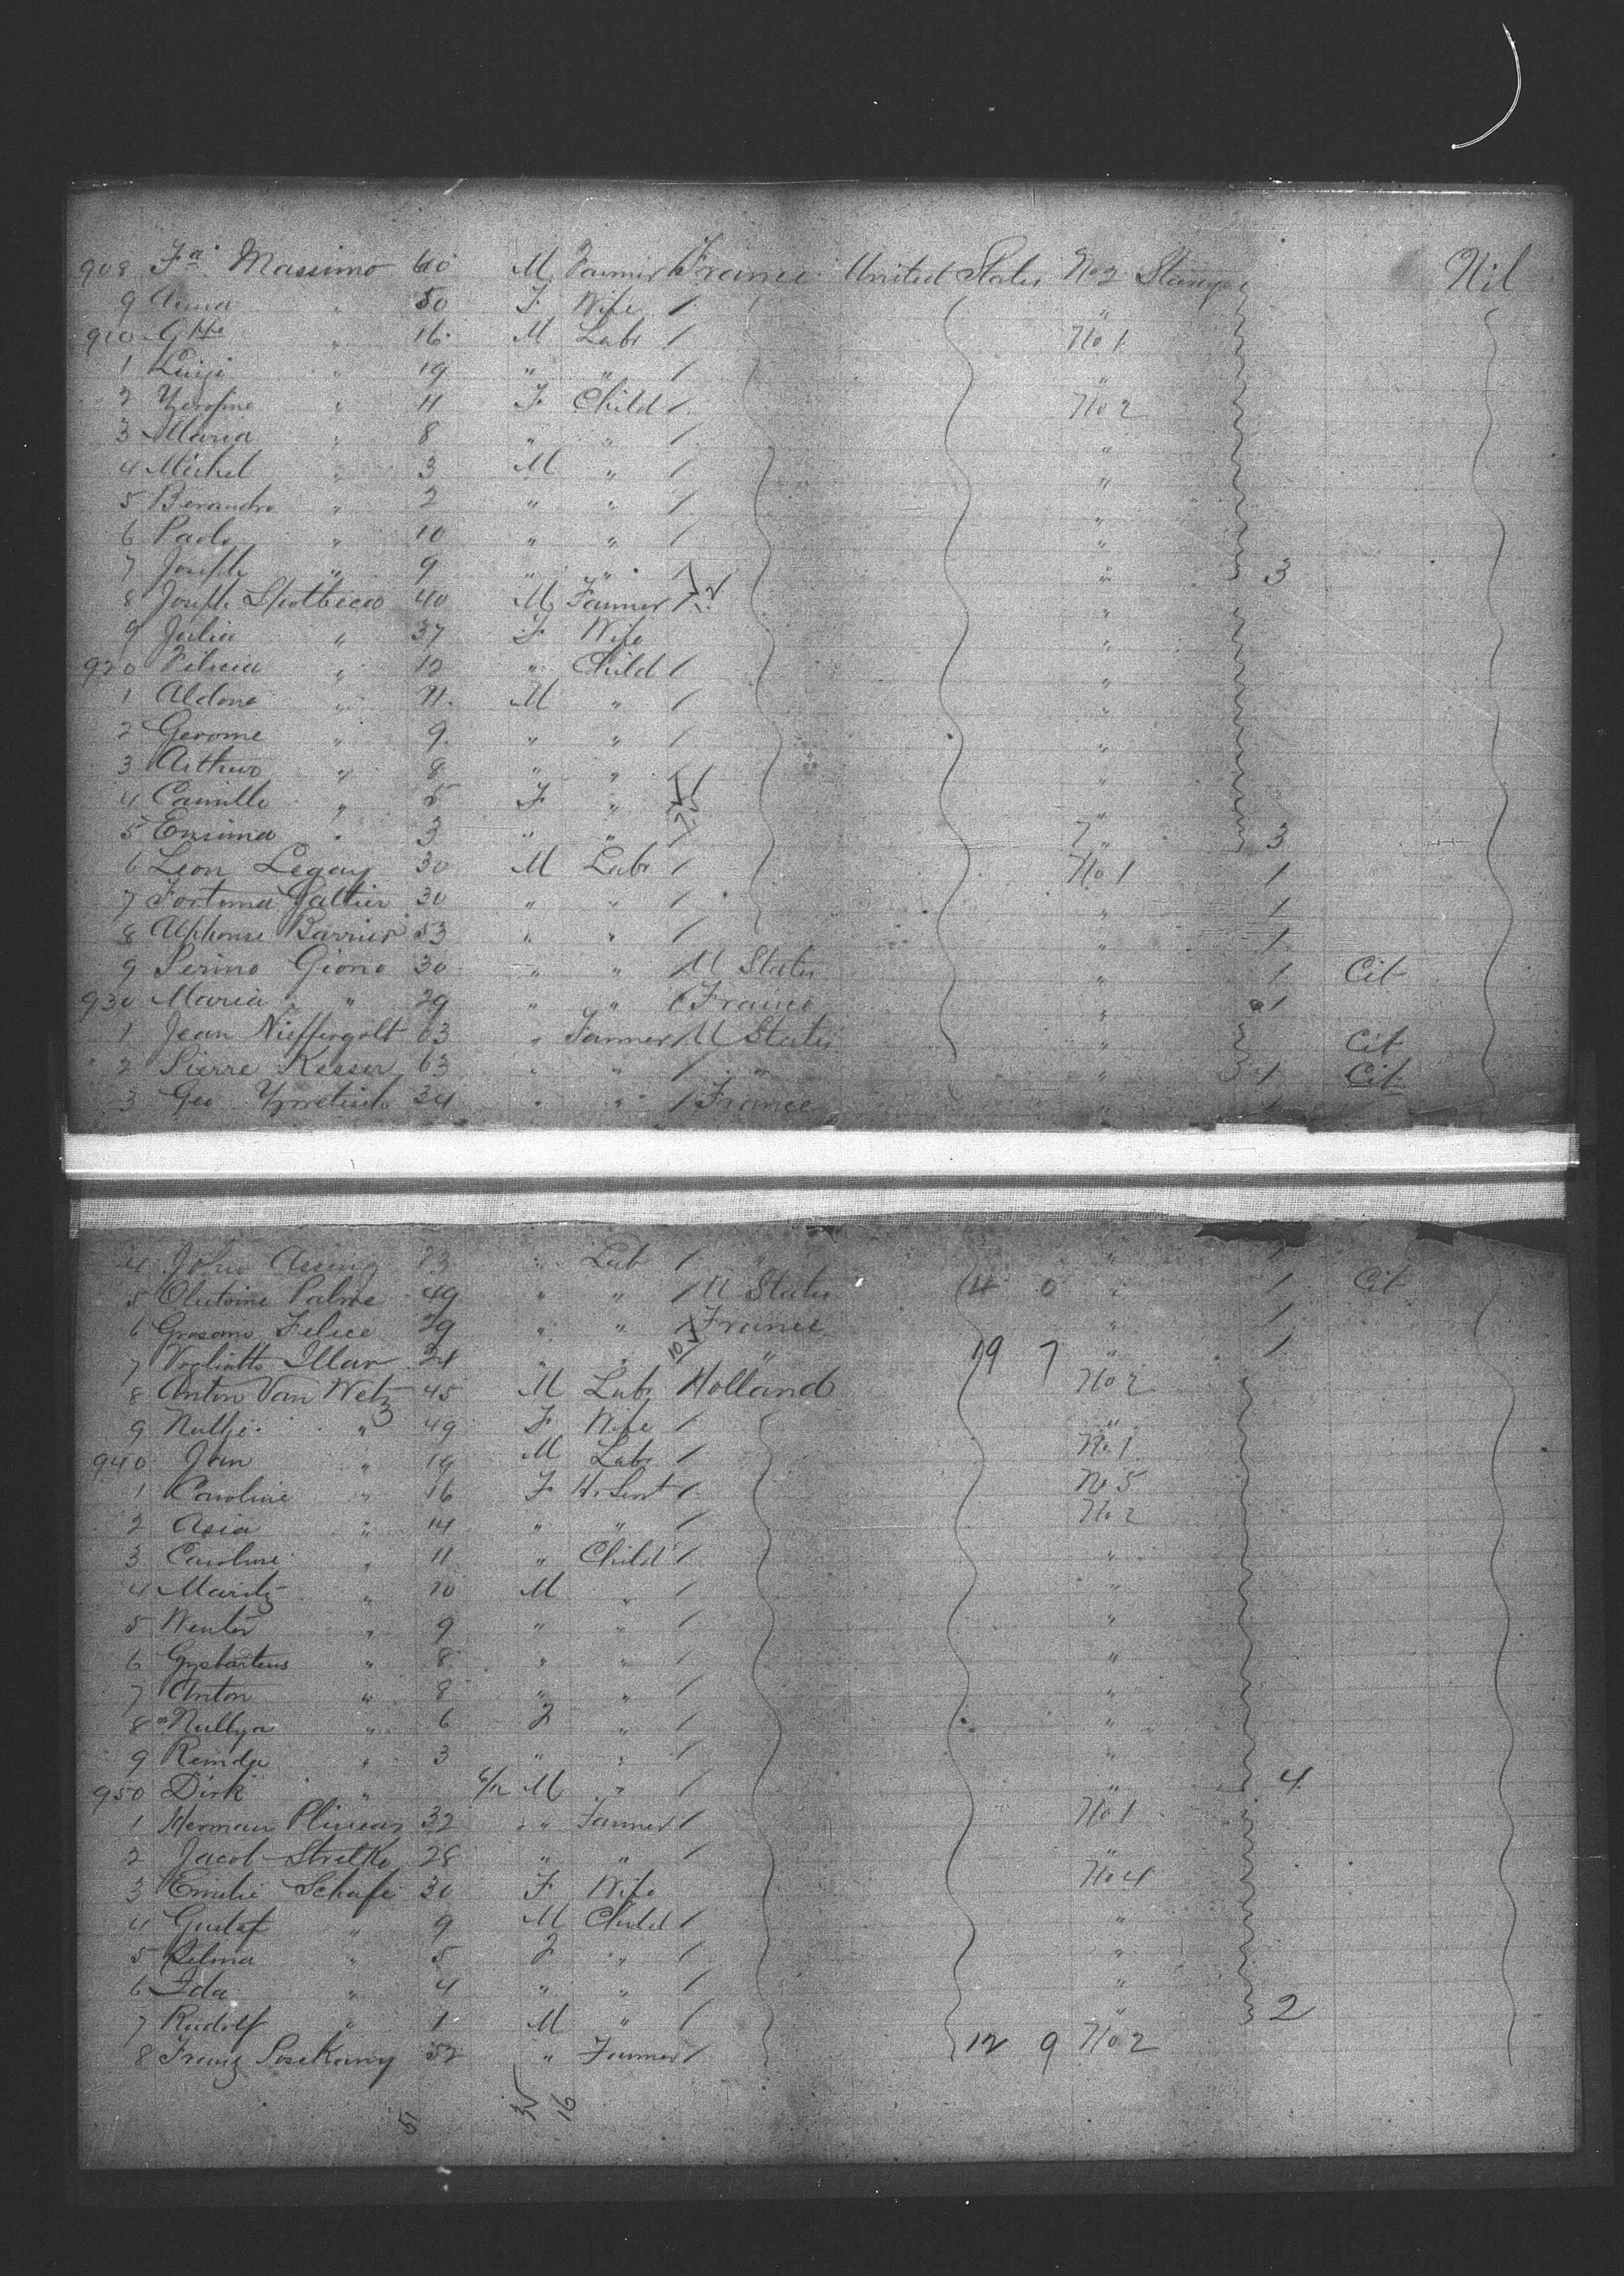 908 Fa. Massimo 60 M Farmer France United States No 2 Steerage Nil
9 Anna " 50 F Wife / "
910 Gppe " 16 M Labr / No 1
1 Luigi " 19 " " / "
2 " 11 F Child / No 2
3 Maria " 8 " " / "
4 Michel " 3 M " / "
5 " 2 " " / "
6 Paolo " 10 " " / "
7 Joseph " 9 " " / " 3
8 Joseph 40 M Farmer / "
9 Julia " 37 F Wife "
920 Felicia " 12 " Child / "
1 Aldone " 11 M " / "
2 Gerome " 9 " " / "
3 Arthuro " 8 " " / "
4 Camille " 5 F " / "
5 Ensima " 3 " " / " 3
6 Leon Legay 30 M Labr / No 1 1
7 Fortuna Galtier 30 " " / " 1
8 Alphonse Barrier 53 " " / " 1
9 Serino Giono 30 " " / U States " 1 Cit
930 Maria " 29 " " / France " 1
1 Jean 63 " Farmer / U States " Cit
2 Pierre Kesser 63 " " / " " 1 Cit
3 Geo 34 " " / France "
4 John Assing 23 " Lab / " "
5 Antoine Palme 49 " " / U States 4 0 " 1 Cit
6 Felice 29 " " / France " 1
7 Illar 24 " " " 19 7 " 1
8 Anton Van Wetz 45 M Labr Holland No 2
9 Nultje " 49 F Wife / "
940 Jan " 19 M Labr / No 1
1 Caroline " 16 F H. Servt / No 5
2 Asia " 14 " " / No 2
3 Caroline " 11 " Child / "
4 Maritz " 10 M " / "
5 Wenter " 9 " " / "
6 Gysbartus " 8 " " / "
7 Anton " 8 " " / "
8 Nullya " 6 F " / "
9 " 3 " " / "
950 Dirk " 6/12 M " / " 4
1 Herman 32 " Farmer / No 1
2 Jacob 28 " " / "
3 Emilie Schafe 30 F Wife No 4
4 Gustaf " 9 M Child / "
5 Selma " 5 F " / "
6 Ida " 4 " " / "
7 Rudolf " 1 M " / " 2
8 Franz 52 " Farmer / 12 9 No 2
5 16